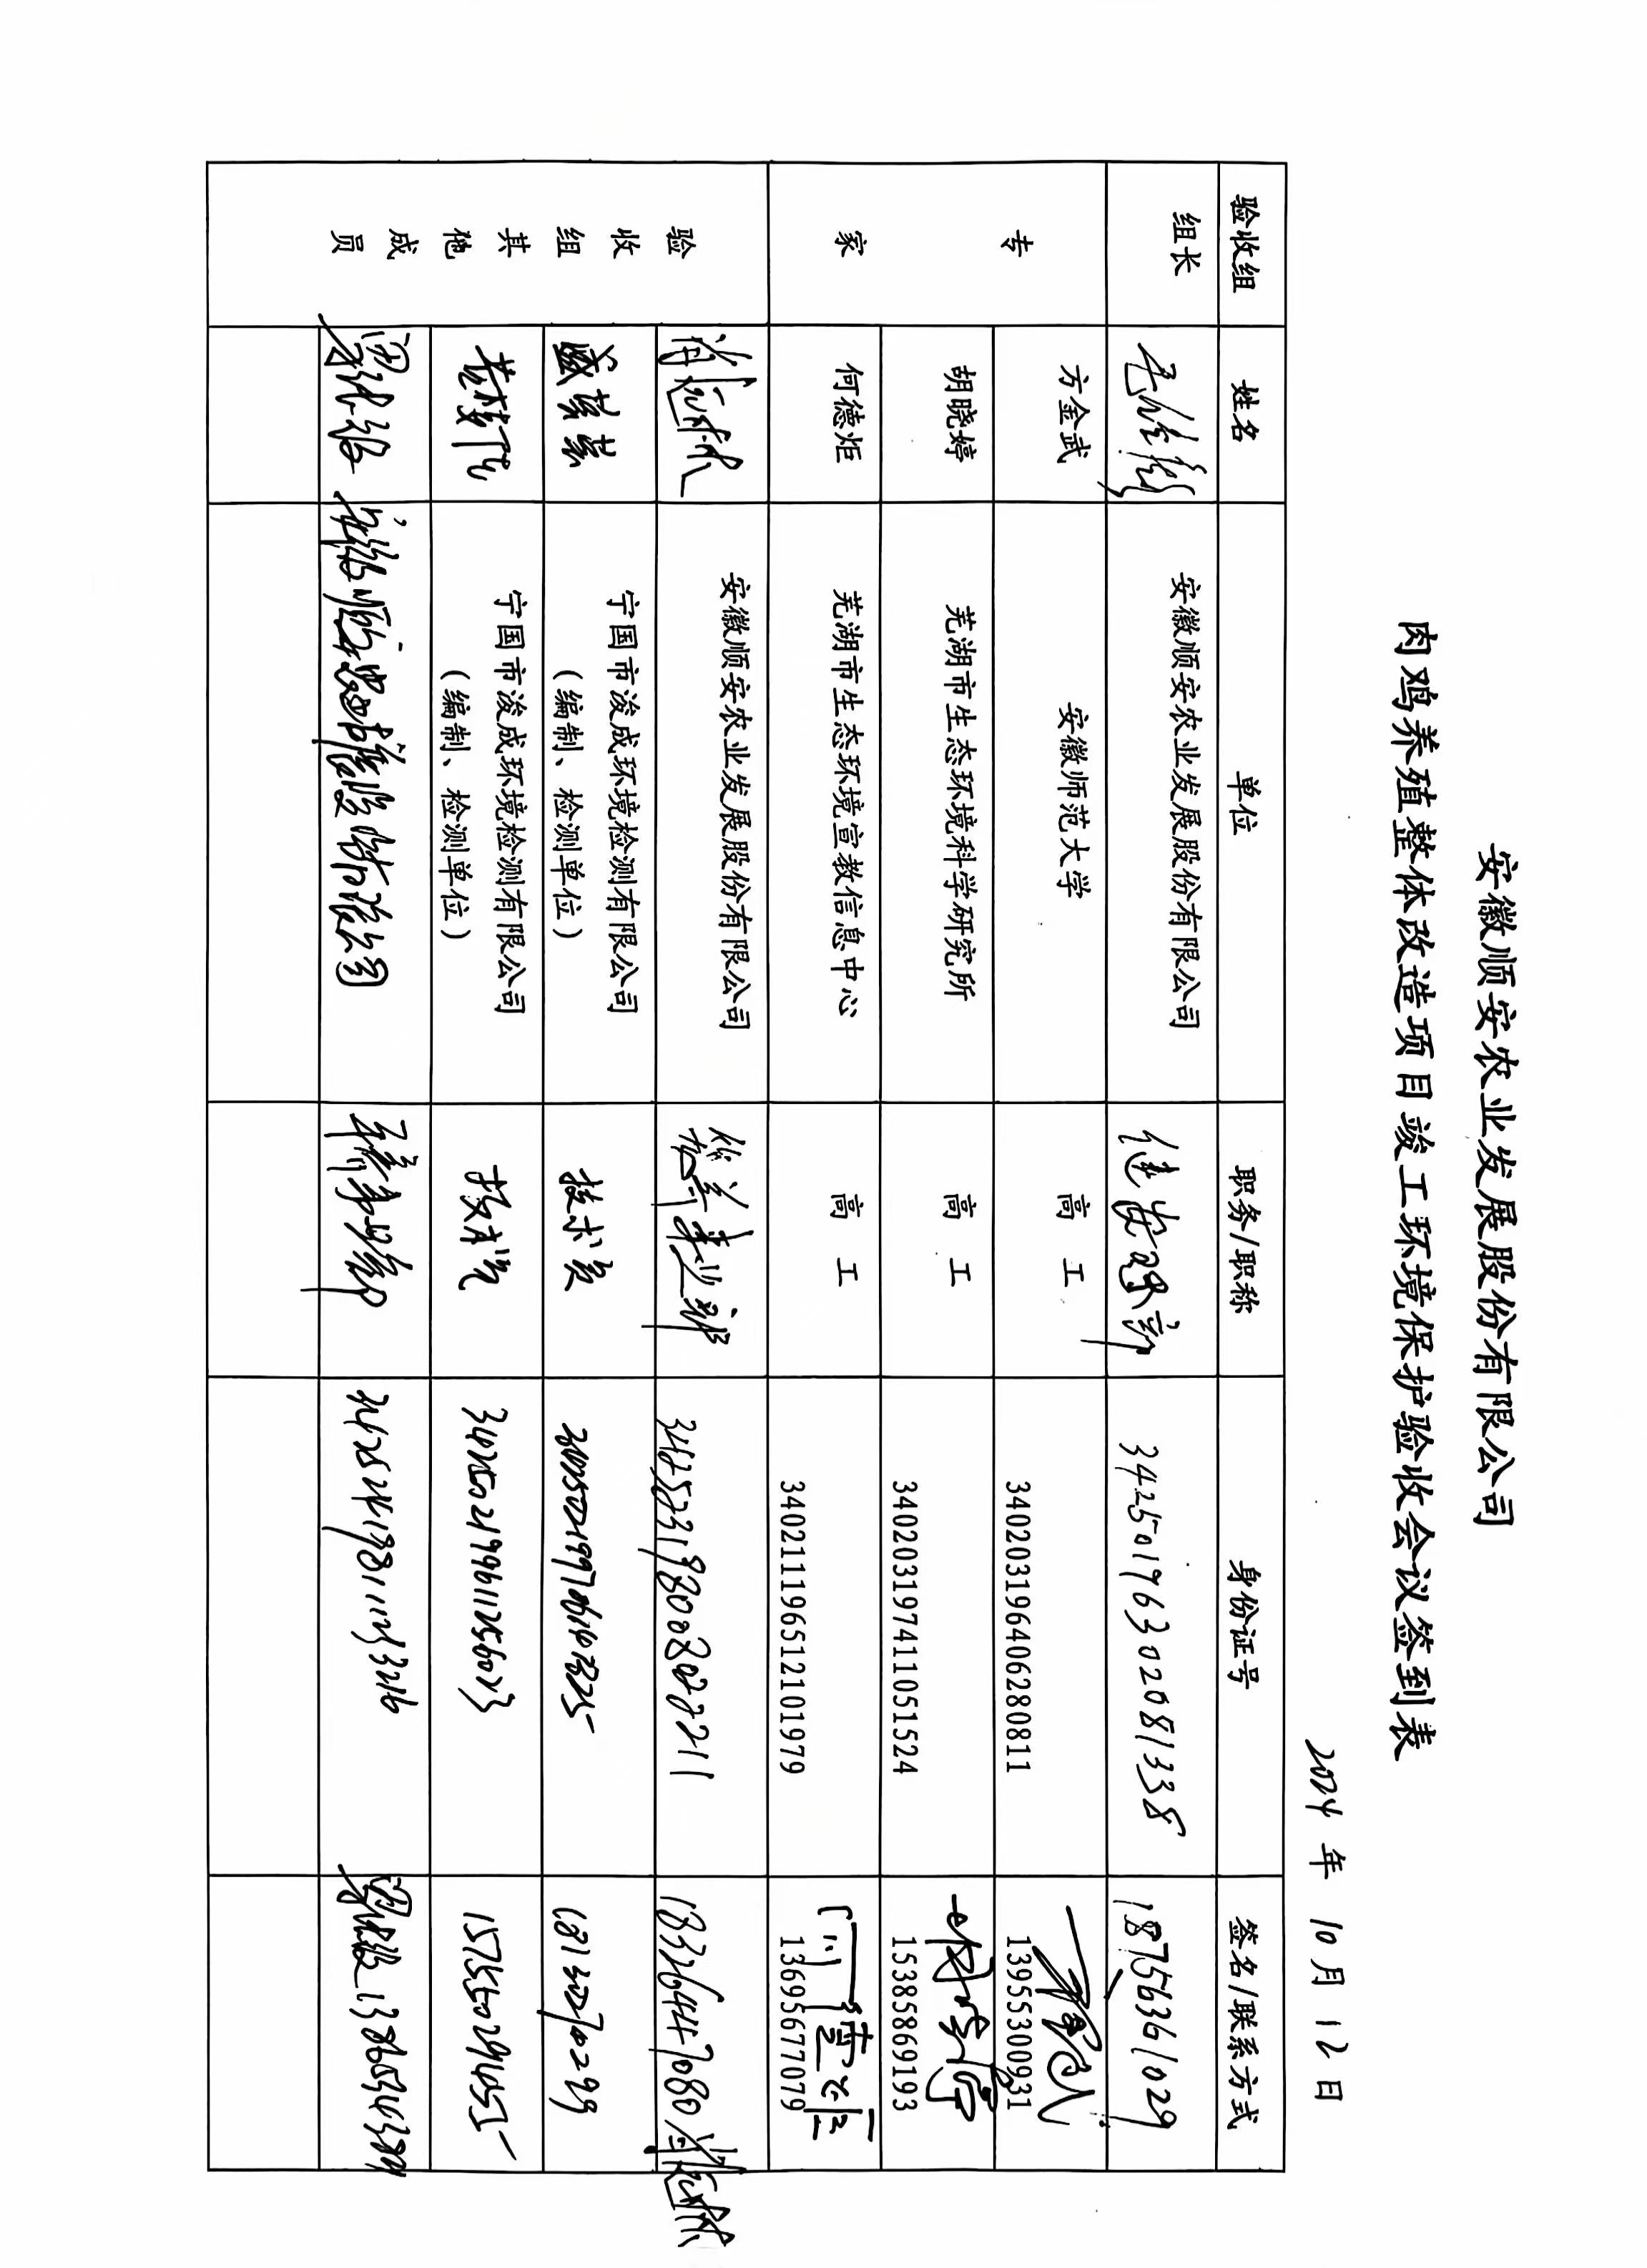 安徽顺安农业发展股份有限公司
肉鸡养殖整体改造项目竣工环境保护验收会议签到表
2024 年 10 月 12 日
验收组 姓名 单位 职务/职称 身份证号 签名/联系方式
组长 安徽顺安农业发展股份有限公司 342501196302081338 18756361029
专家
方金武 安徽师范大学 高 工 340203196406280811 13955300931
胡晓婷 芜湖市生态环境科学研究所 高 工 340203197411051524 15385869193
何德炬 芜湖市生态环境宣教信息中心 高 工 340211196512101979 13695677079
验收组其他成员
安徽顺安农业发展股份有限公司 18326447080
盛芸芸 宁国市浚成环境检测有限公司 技术员 18130270299
（编制、检测单位）
宁国市浚成环境检测有限公司 技术员 15755029455
（编制、检测单位）